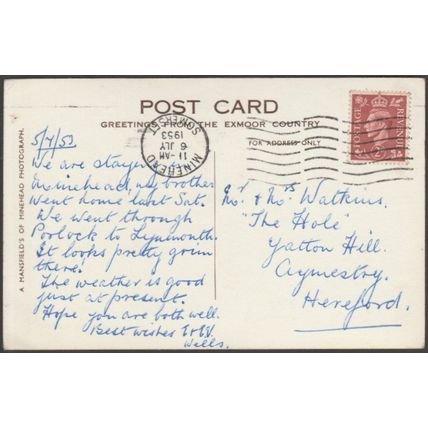 POST CARD
GREETINGS FROM THE EXMOOR COUNTRY
FOR ADDRESS ONLY
A MANSFIELD'S OF MINEHEAD PHOTOGRAPH.
MINEHEAD
SOMERSET
11-AM
6 JLY
1953
POSTAGE
REVENUE
5/7/53
We are staying in
Minehead, my brother
went home last Sat.
We went through
Porlock to Lynmouth.
It looks pretty grim
there!
The weather is good
just at present.
Hope you are both well.
Best wishes
Wells.
Mr. & Mrs Watkins.
"The Hole"
Yatton Hill.
Aymestry.
Hereford.